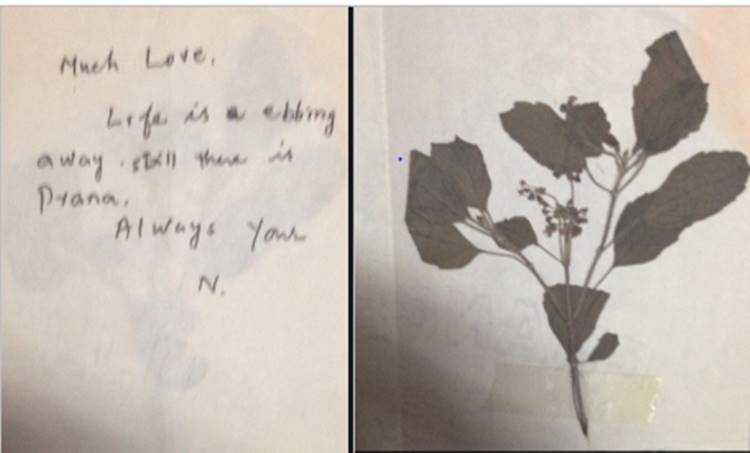 Much Love,
Life is a ebbing
away. still there is
Prana.
Always Your
N.